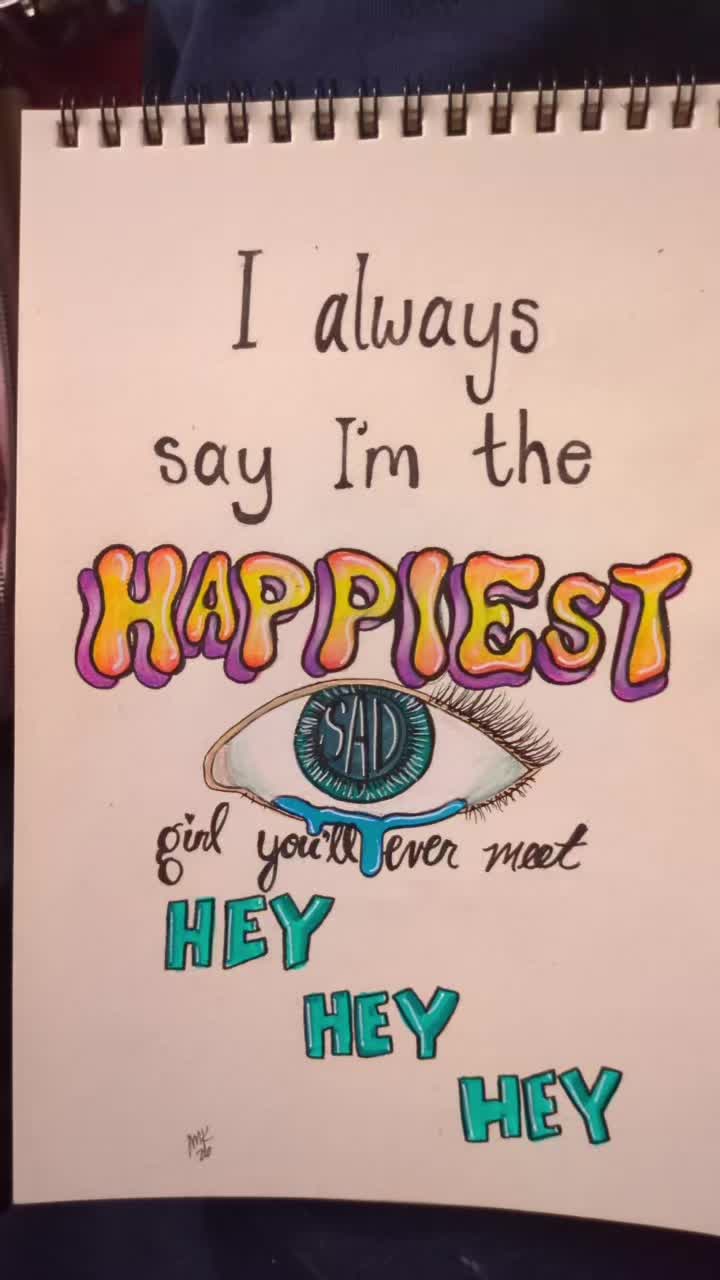 I always
say I'm the
HAPPIEST
SAD
girl you'll ever meet
HEY
HEY
HEY
MK
26